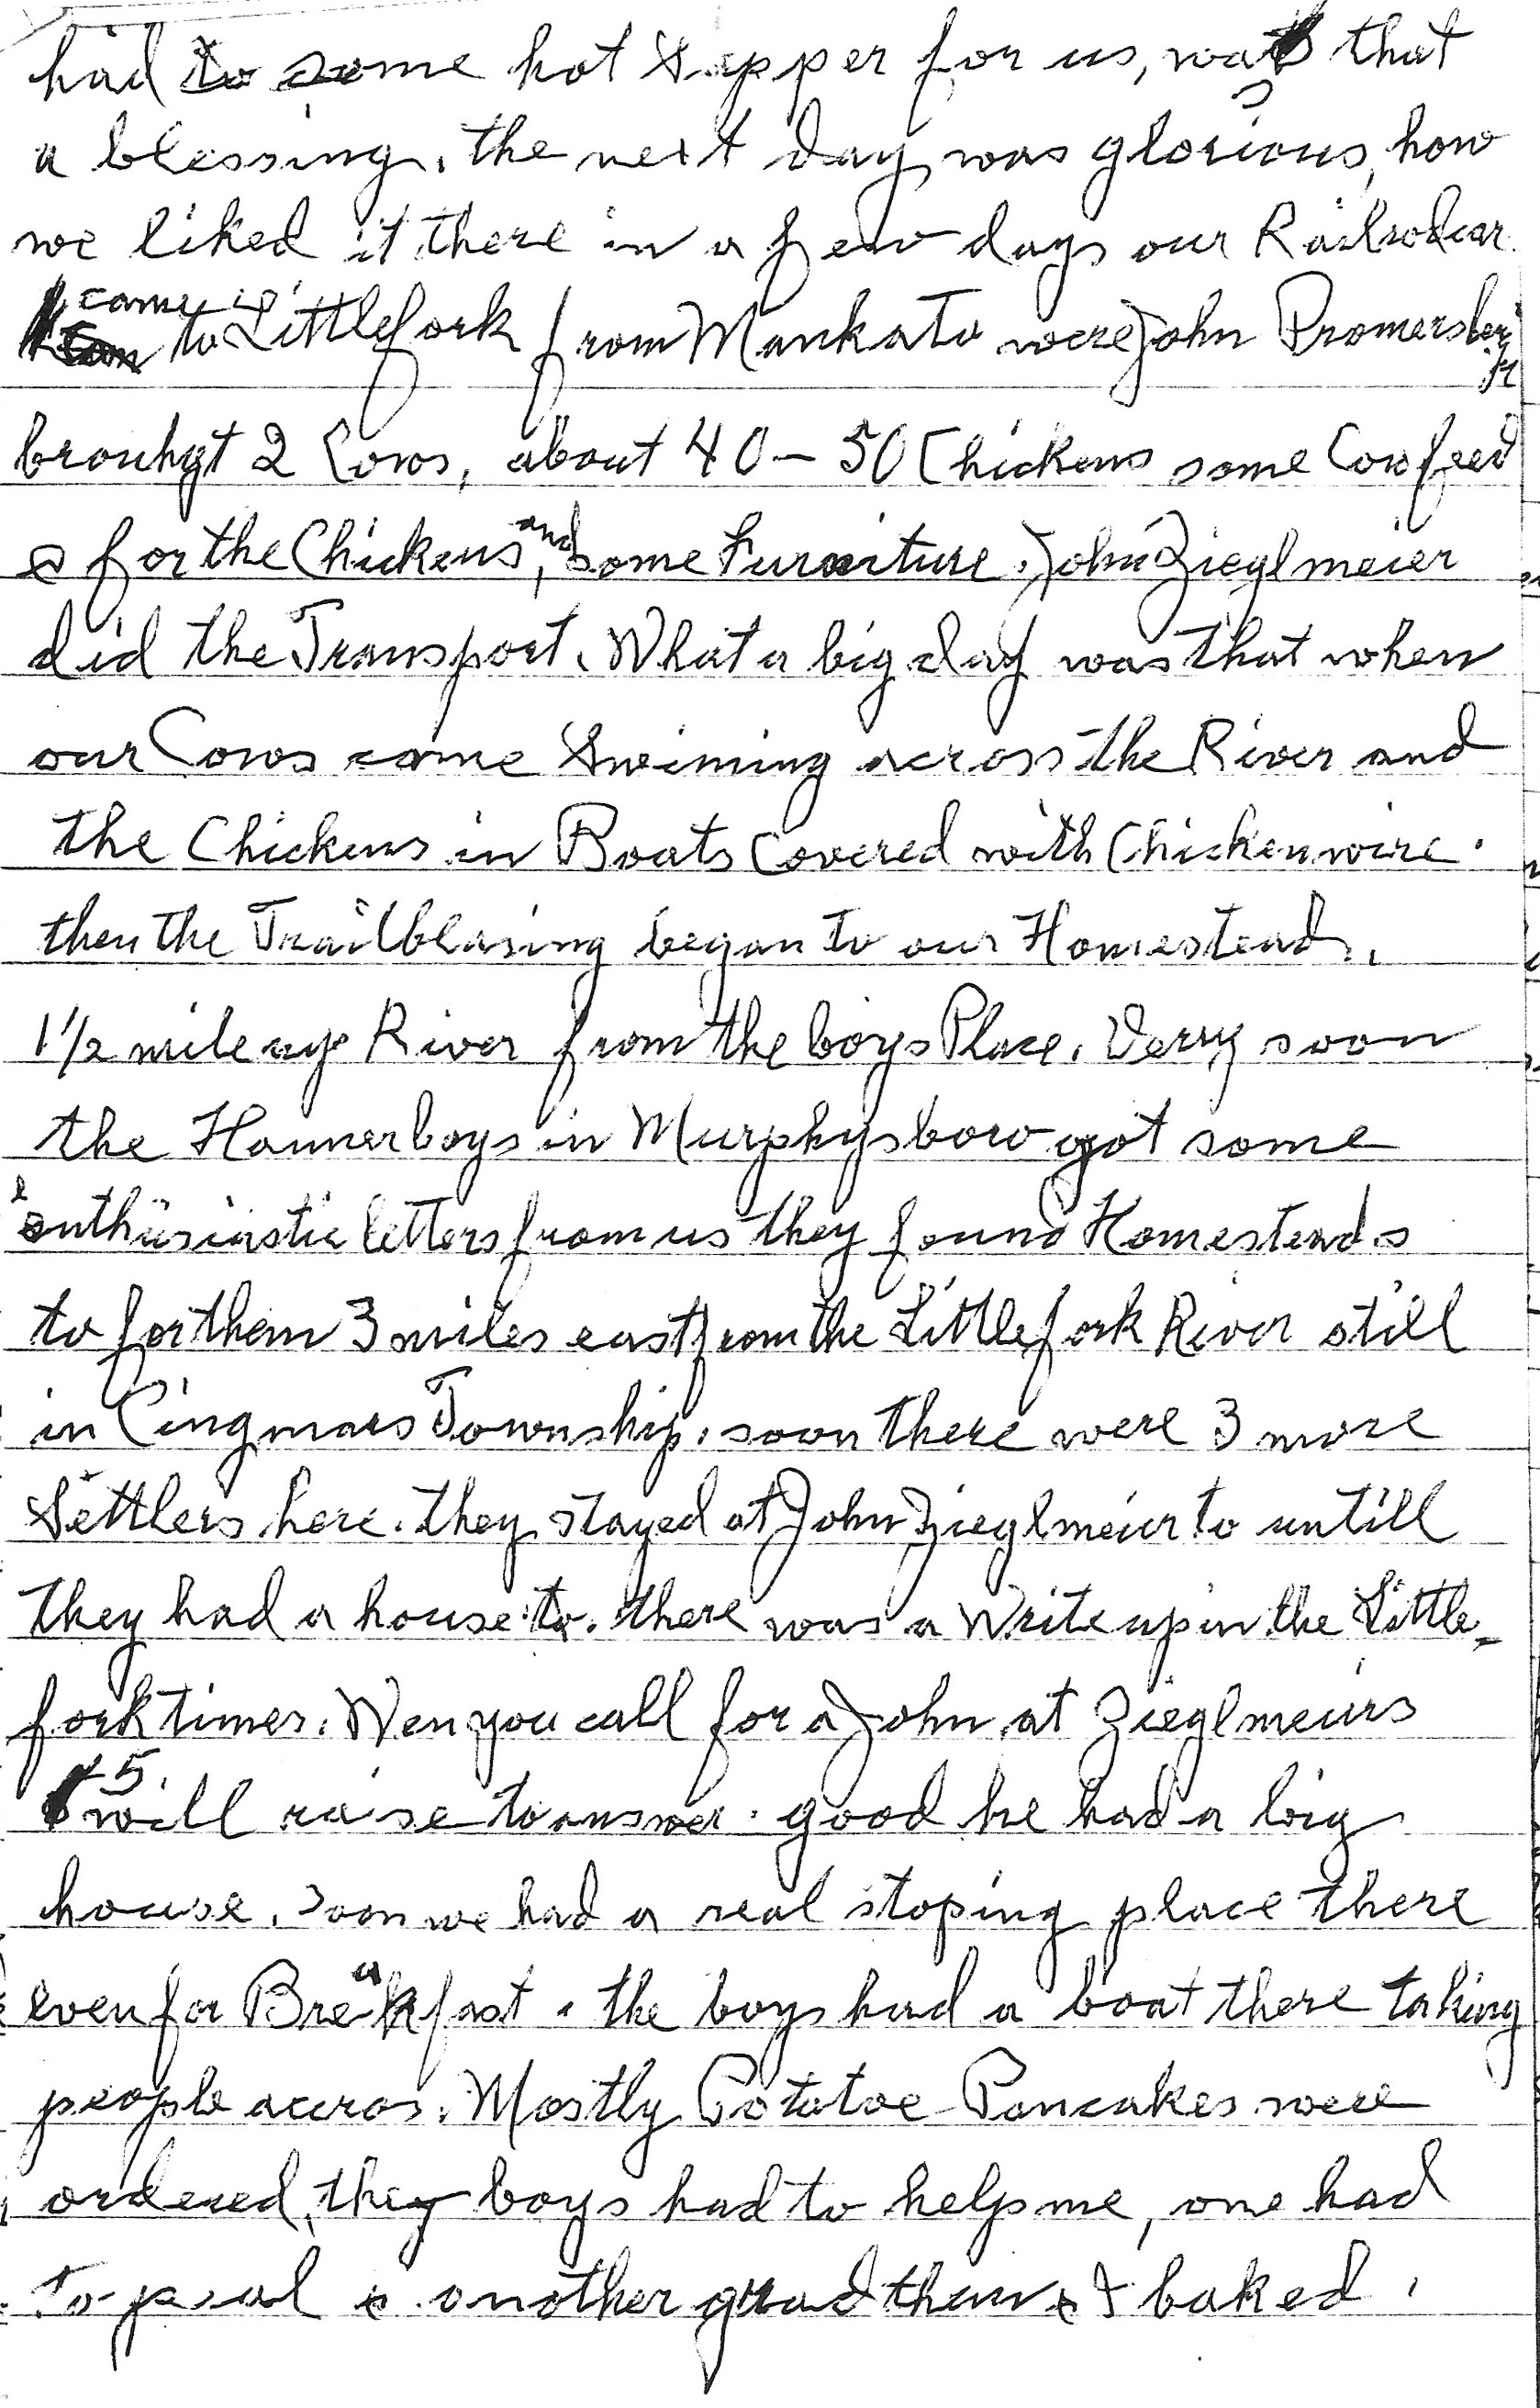 had to some hot Supper for us, was that
a blessing. the next day was glorious, how
we liked it there in a few days our Railrodcar
came to Littlefork from Mankato were John Bromersberger Jr
brouhgt 2 Cows, about 40 - 50 Chickens some Cowfeed
& for the Chickens, and some Furniture. John Zieglmeier
did the Transport. What a big day was that when
our Cows came Swiming across the River and
the Chickens in Boats Covered with Chickenwire.
then the Trailblasing began to our Homestead.
1 1/2 mile up River from the boys Place. Verry soon
the Hannerboys in Murphysboro got some
enthusiastic letters from us they found Homesteads
to for them 3 miles east from the Littlefork River still
in Cingmars Township. soon there were 3 more
Settlers here. they stayed at John Zieglmeier to untill
they had a house to. there was a Write up in the Little-
fork times. Wen you call for a John at Zieglmeiers
5. will raise to answer. good he had a big
house. soon we had a real stoping place there
even for Breakfast. the boys had a boat there taking
people accros. Mostly Potatoe Pancakes were
ordered, the boys had to help me, one had
to peal & another grad them & I baked.